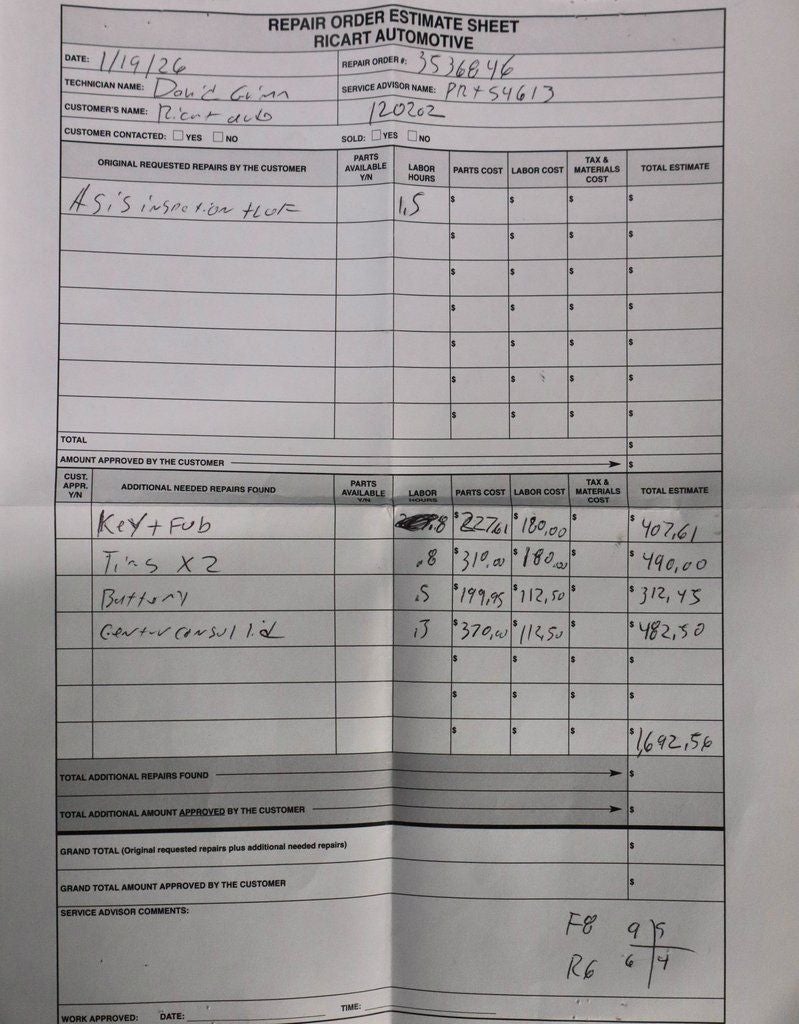 REPAIR ORDER ESTIMATE SHEET
RICART AUTOMOTIVE
DATE: 1/19/26 REPAIR ORDER #: 3536846
TECHNICIAN NAME: David SERVICE ADVISOR NAME: 54613
CUSTOMER'S NAME: Ricart auto 120202
CUSTOMER CONTACTED: YES NO SOLD: YES NO
ORIGINAL REQUESTED REPAIRS BY THE CUSTOMER PARTS AVAILABLE Y/N LABOR HOURS PARTS COST LABOR COST TAX & MATERIALS COST TOTAL ESTIMATE
ASiS inspection 1.5 $ $ $ $
$ $ $ $
$ $ $ $
$ $ $ $
$ $ $ $
$ $ $ $
$ $ $ $
TOTAL $
AMOUNT APPROVED BY THE CUSTOMER $
CUST. APPR. Y/N ADDITIONAL NEEDED REPAIRS FOUND PARTS AVAILABLE Y/N LABOR HOURS PARTS COST LABOR COST TAX & MATERIALS COST TOTAL ESTIMATE
Key + Fob .8 $227.61 $180.00 $ $407.61
Tires X2 .8 $310.00 $180.00 $ $490.00
Battery .5 $199.95 $112.50 $ $312.45
Center consol lid $370.00 $112.50 $ $482.50
$ $ $ $
$ $ $ $
$ $ $ $1,692.56
TOTAL ADDITIONAL REPAIRS FOUND $
TOTAL ADDITIONAL AMOUNT APPROVED BY THE CUSTOMER $
GRAND TOTAL (Original requested repairs plus additional needed repairs) $
GRAND TOTAL AMOUNT APPROVED BY THE CUSTOMER $
SERVICE ADVISOR COMMENTS:
F8 9 5
R6 6 4
WORK APPROVED: DATE: TIME: